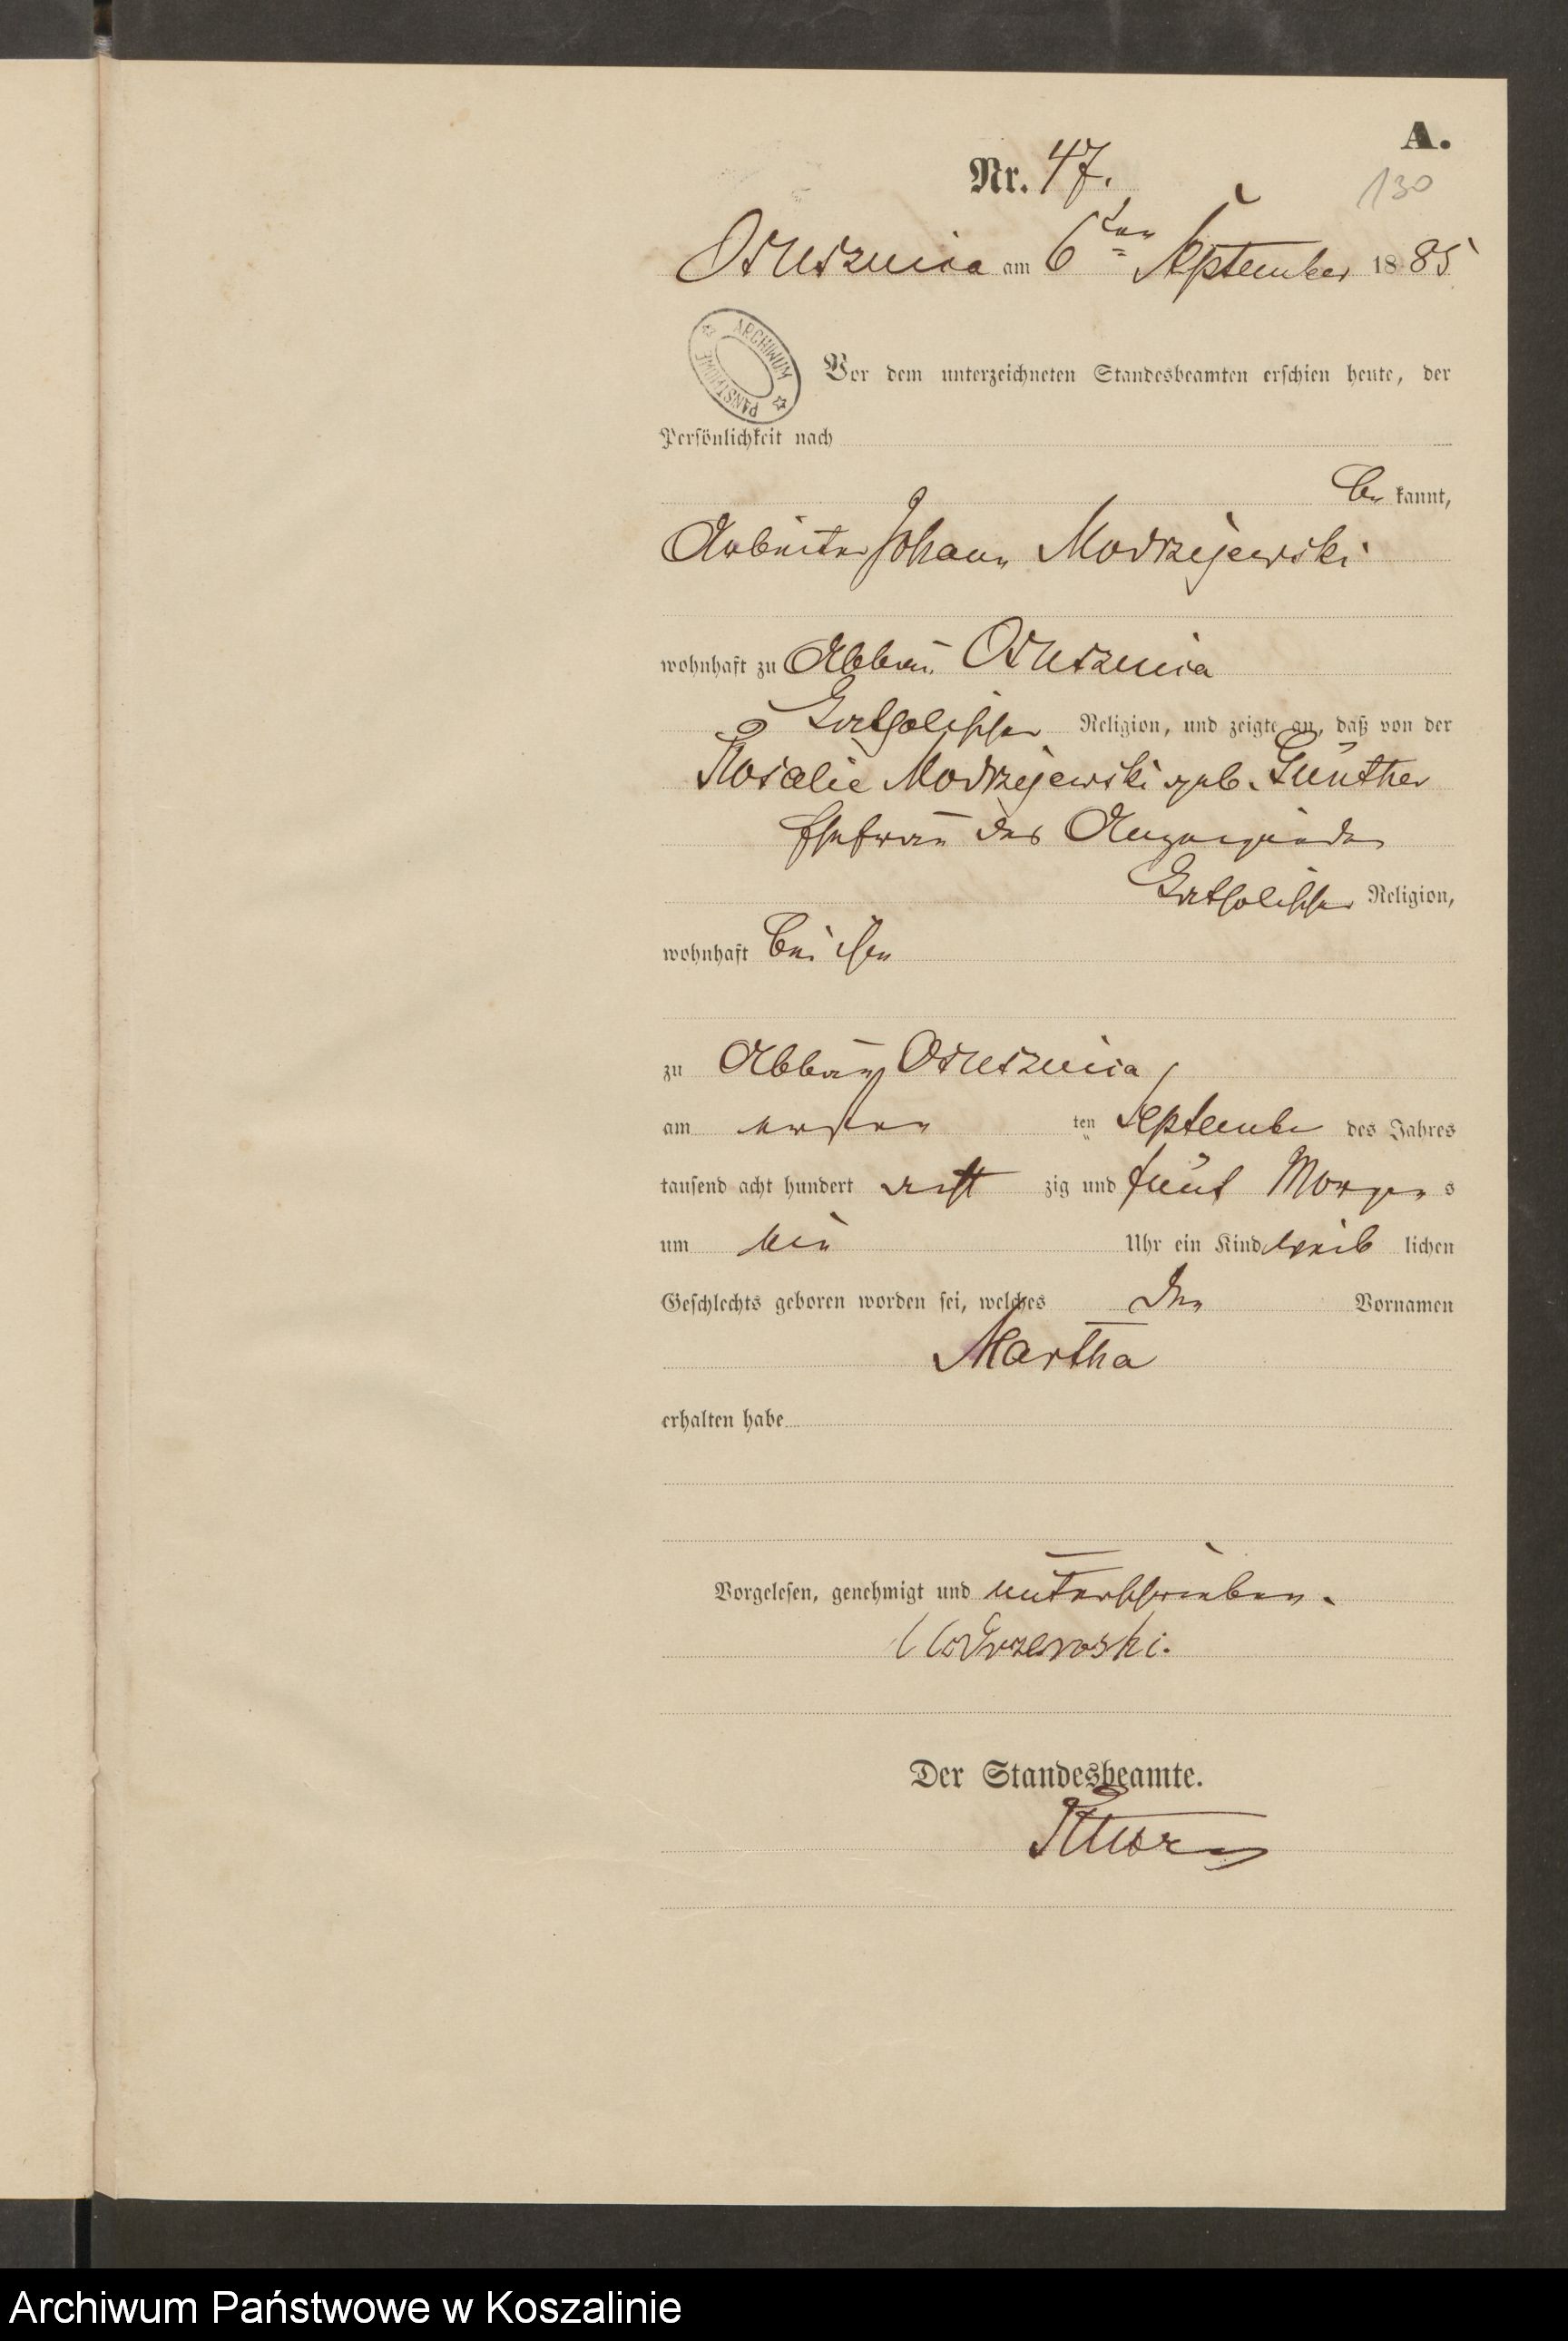 A.
Nr. 47.
130
Ostusznica am 6ten September 1885
ARCHIWUM PAŃSTWOWE
Vor dem unterzeichneten Standesbeamten erschien heute, der
Persönlichkeit nach
be kannt,
Arbeiter Johann Modrzejewski
wohnhaft zu Abbau
katholischer Religion, und zeigte an, daß von der
Rosalie Modrzejewski geb. Günther
Ehefrau des Anzeigenden
katholischer Religion,
wohnhaft bei ihm
zu Abbau
am ersten ten September des Jahres
tausend acht hundert acht zig und fünf Morgens
um ein Uhr ein Kind weib lichen
Geschlechts geboren worden sei, welches den Vornamen
Martha
erhalten habe
Vorgelesen, genehmigt und unterschrieben.
Der Standesbeamte.
Archiwum Państwowe w Koszalinie